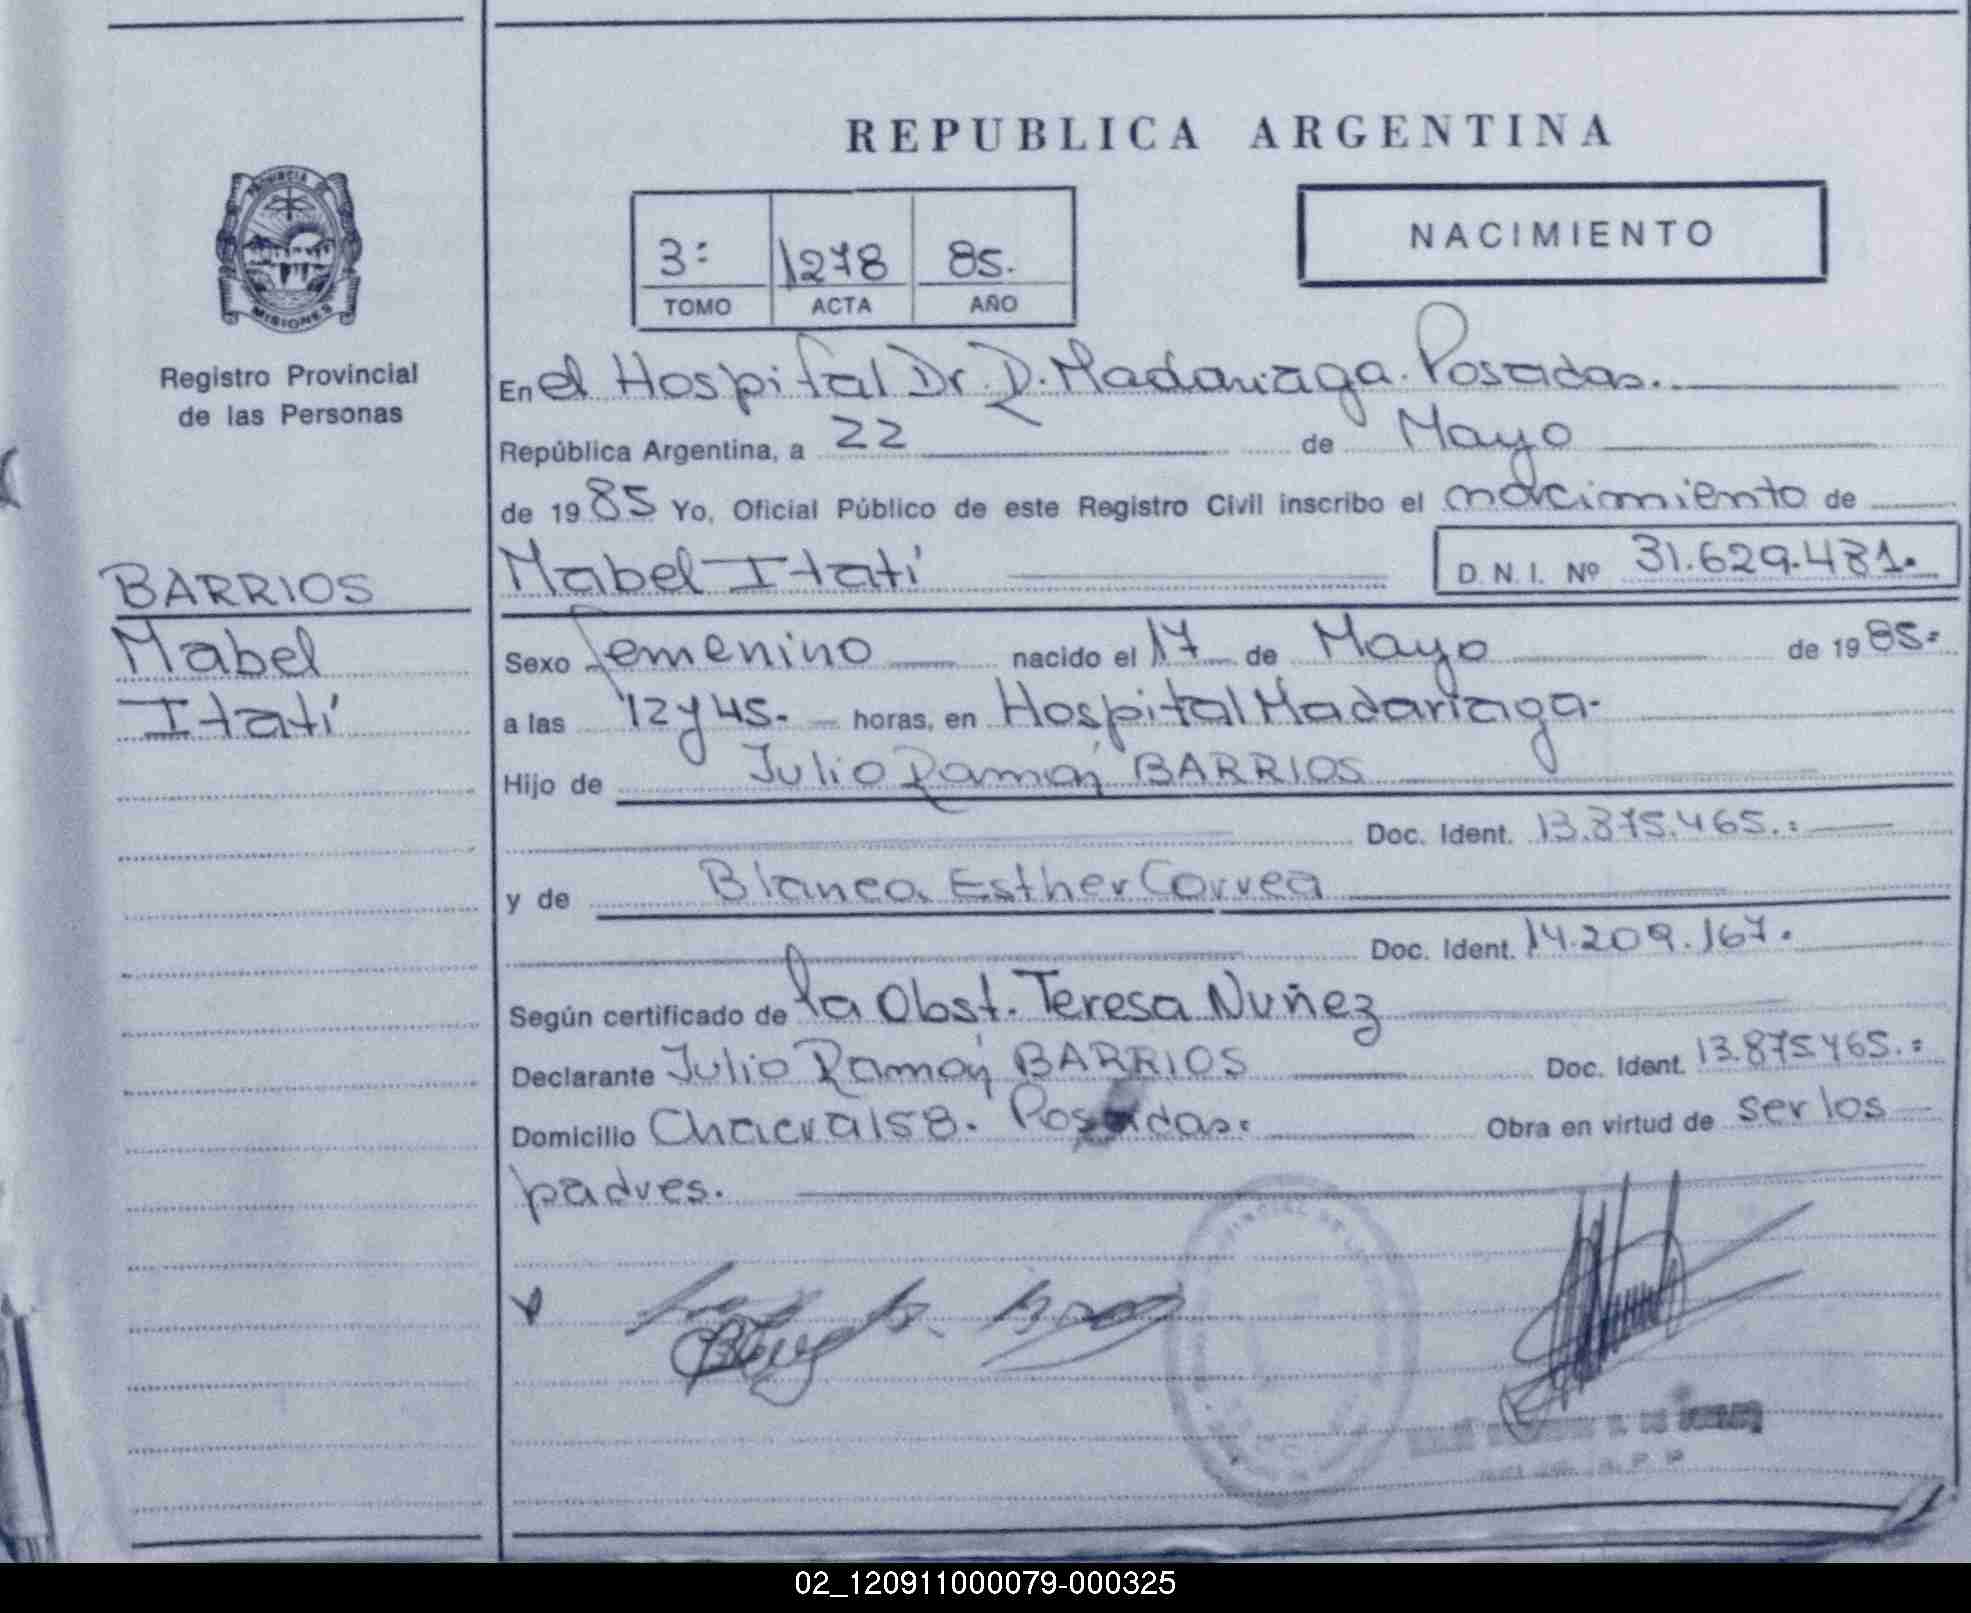 REPUBLICA ARGENTINA
PROVINCIA DE
MISIONES
Registro Provincial
de las Personas
3º 1278 85.
TOMO ACTA AÑO
NACIMIENTO
En el Hospital Dr. R. Madariaga. Posadas.
República Argentina, a 22 de Mayo
de 1985 Yo, Oficial Público de este Registro Civil inscribo el nacimiento de
Mabel Itatí D.N.I. Nº 31.629.481.
BARRIOS
Mabel
Itatí
Sexo femenino nacido el 17 de Mayo de 1985=
a las 12 y 45. horas, en Hospital Madariaga.
Hijo de Julio Ramón BARRIOS
Doc. Ident. 13.875.465.=
y de Blanca Esther Correa
Doc. Ident. 14.209.167.
Según certificado de la Obst. Teresa Nuñez
Declarante Julio Ramón BARRIOS Doc. Ident. 13.875.465.=
Domicilio Chacra 158. Posadas. Obra en virtud de ser los
padres.
02_120911000079-000325